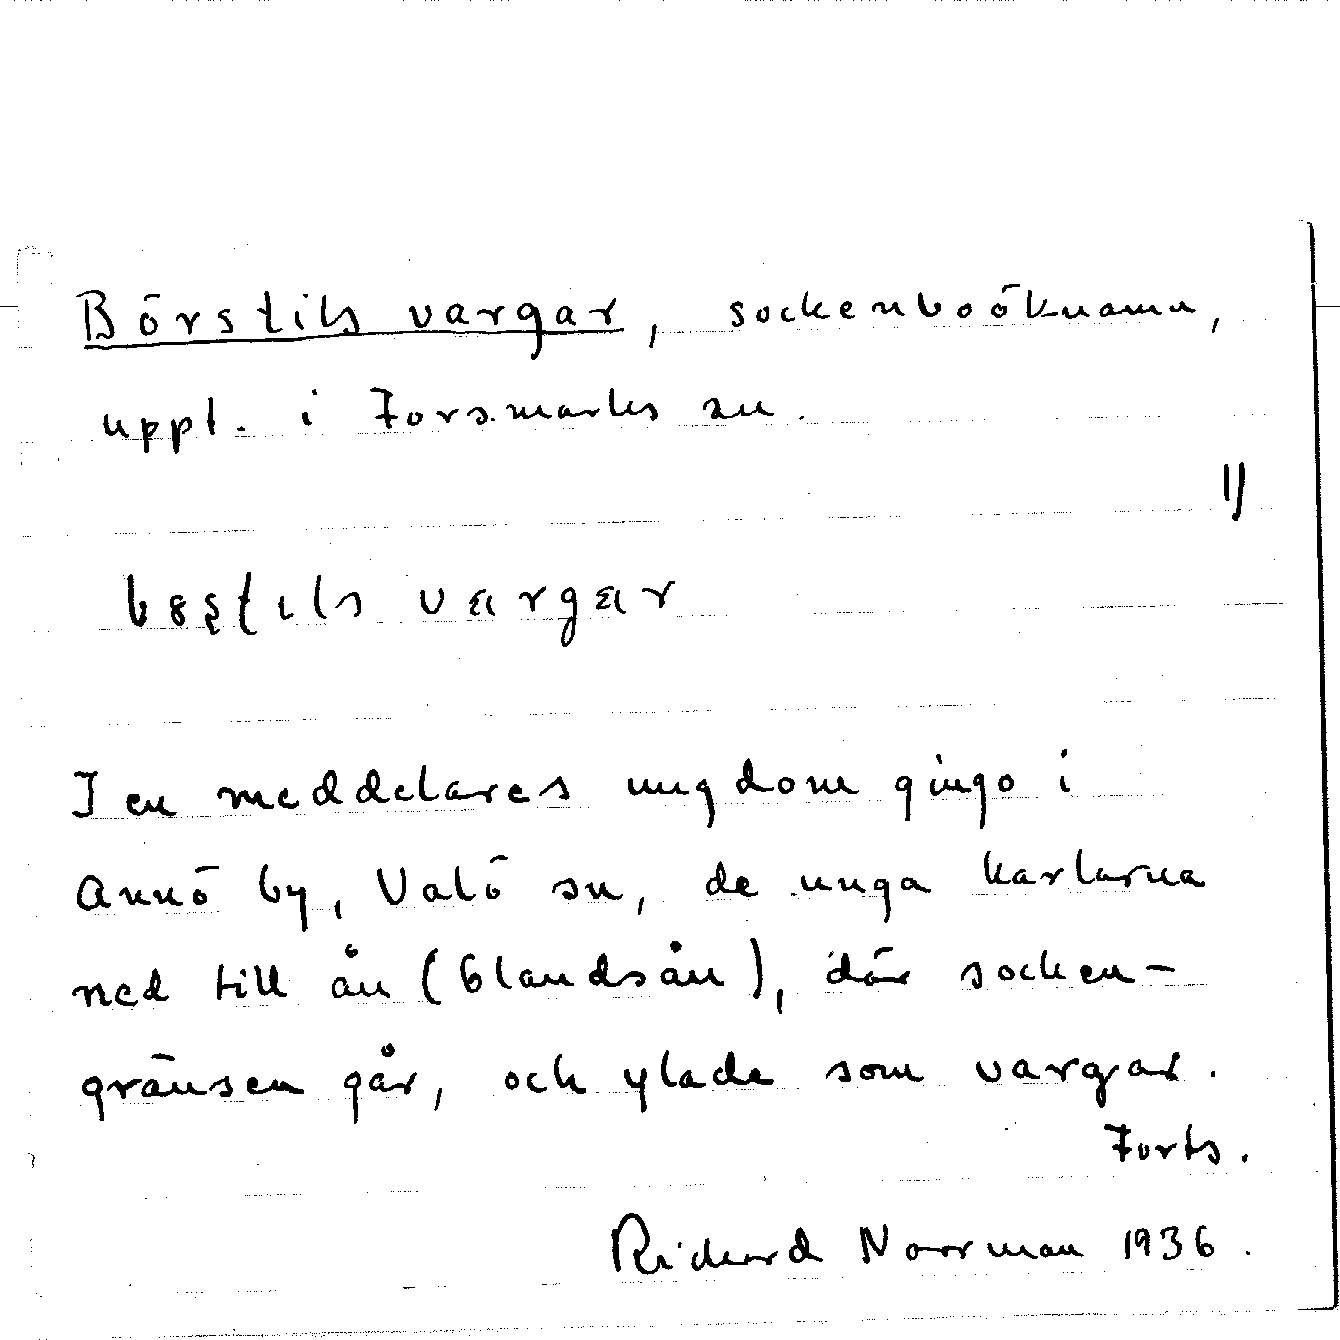 Börstils vargar, sockenboöknamn,
uppt. i Forsmarks sn.
1)
vargar
I en meddelares ungdom gingo i
Annö by, Valö sn, de unga karlarna
ned till ån (Olandsån), där socken-
gränsen går, och ylade som vargar.
Forts.
Richard Norrman 1936.